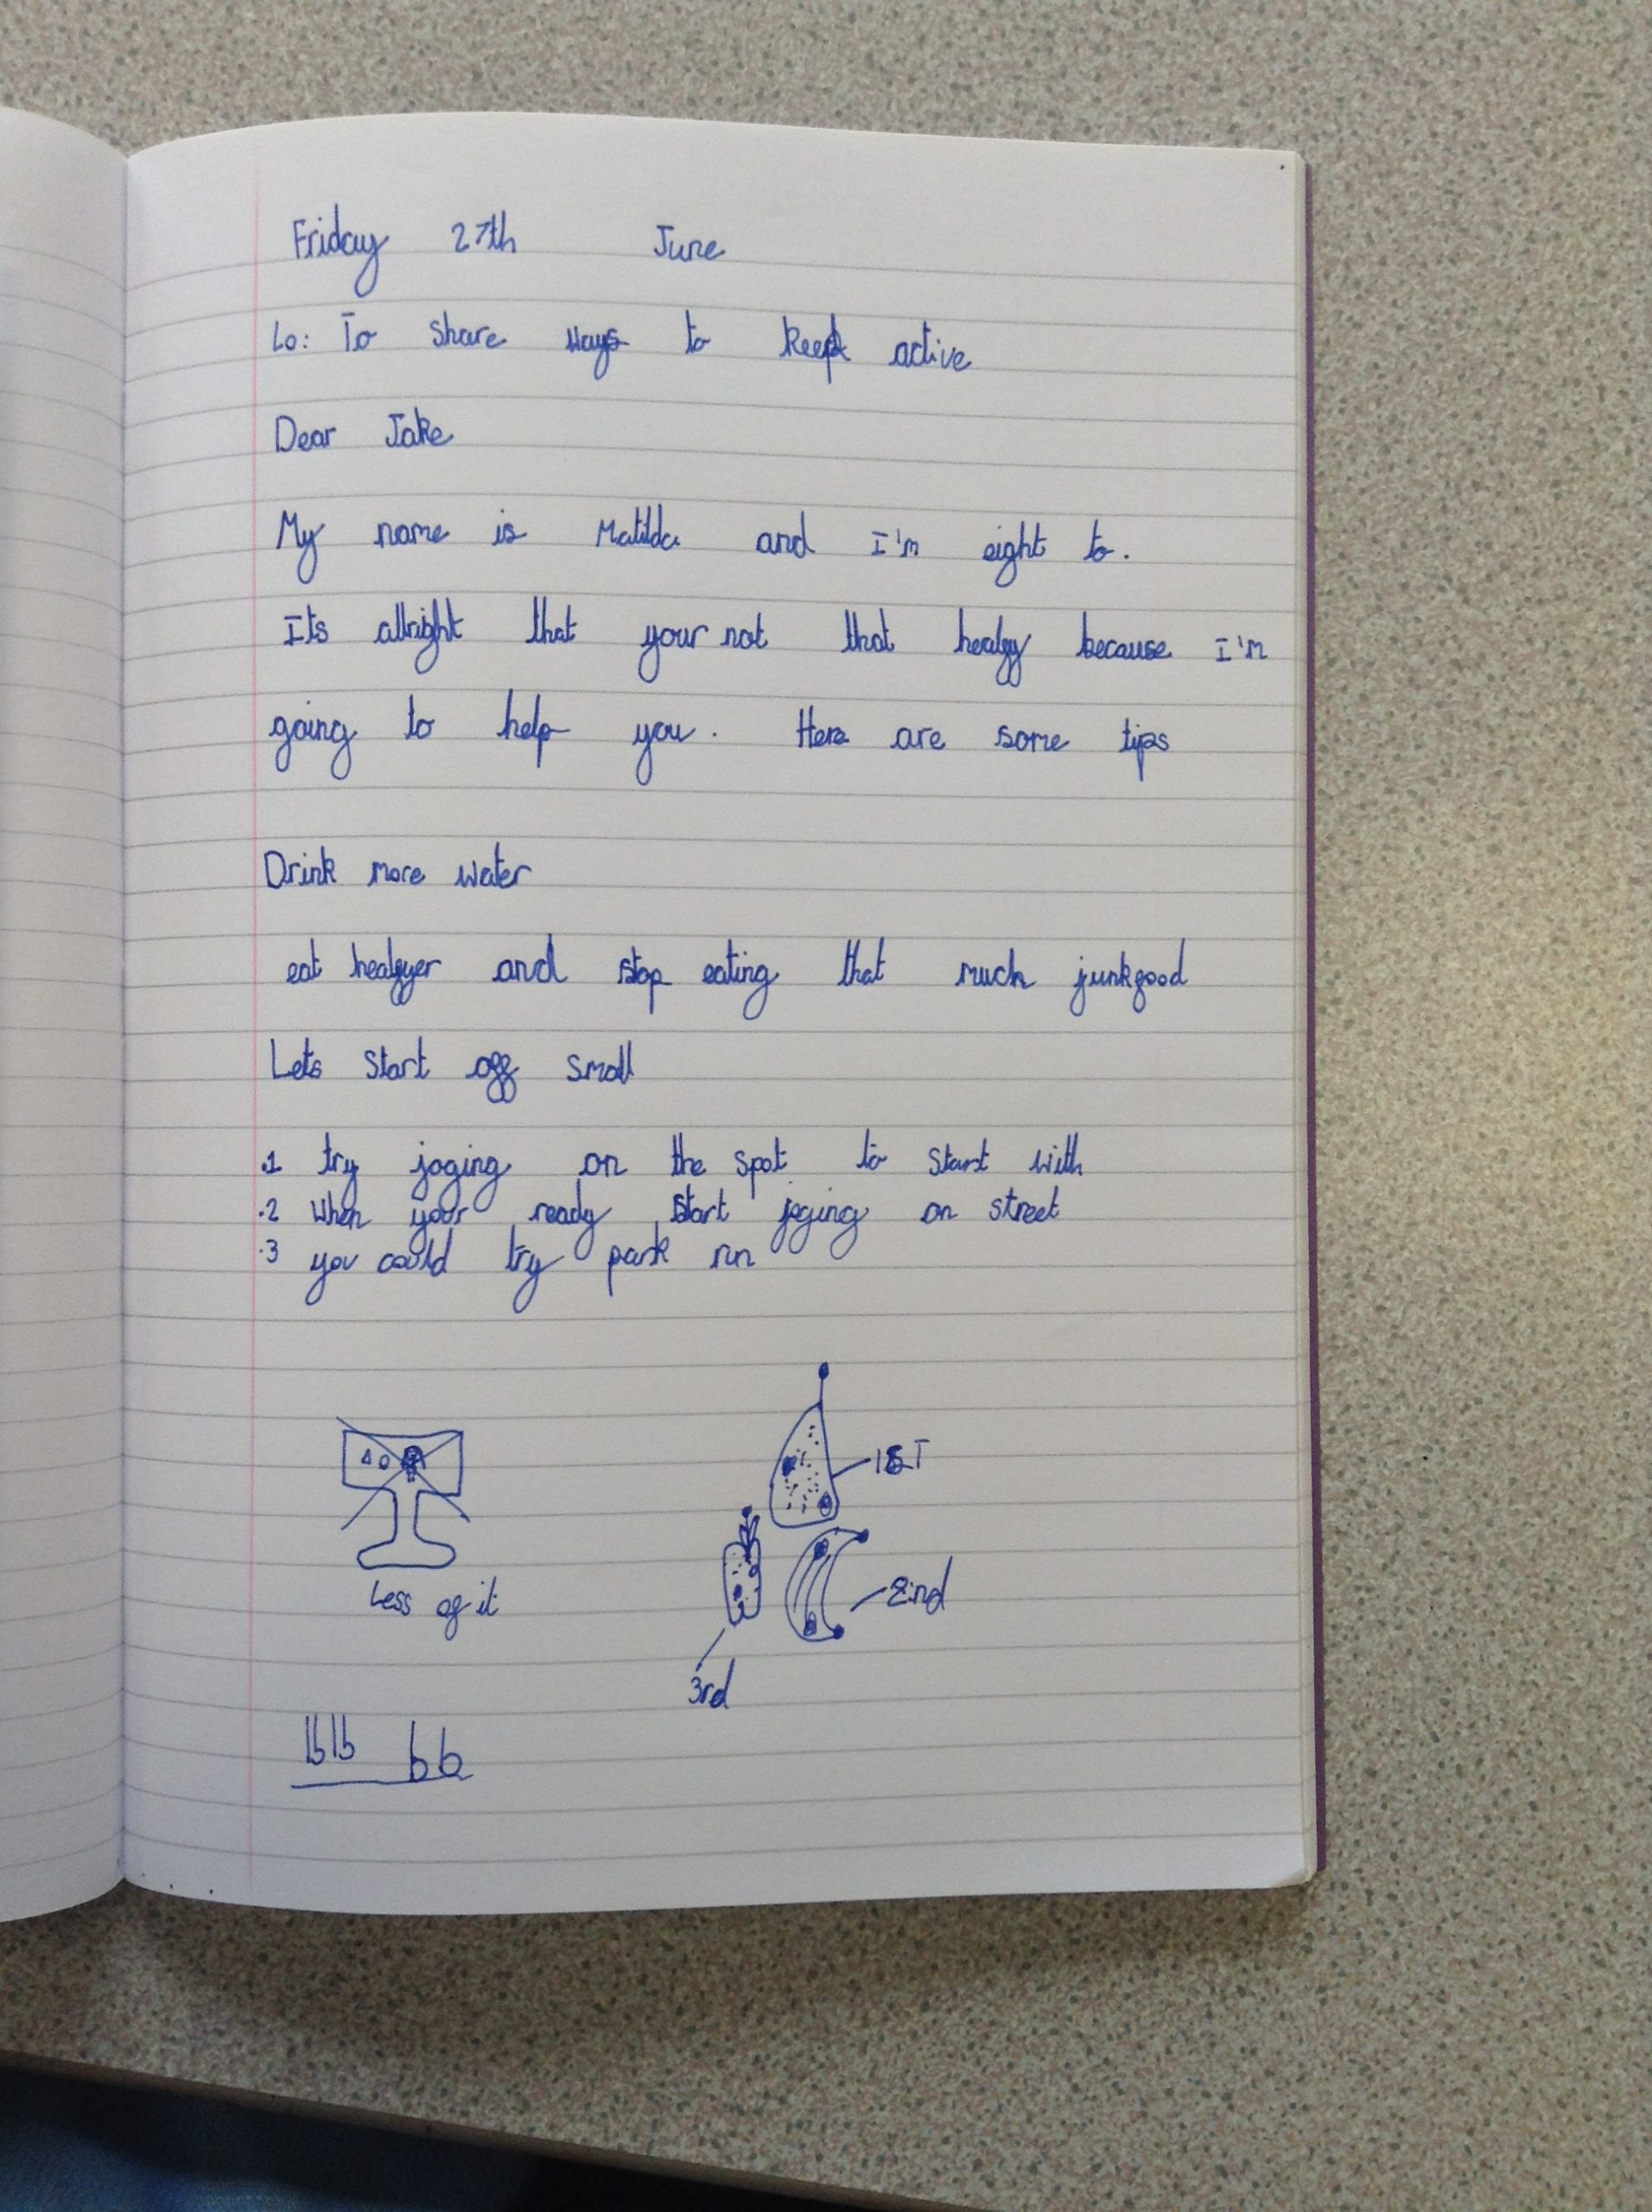 Friday 27th June
Lo: To share ways to keep active
Dear Jake
My name is Matilda and I'm eight to.
Its allright that your not that healfy because I'm
going to help you. Here are some tips
Drink more water
eat healfyer and stop eating that much junkfood
Lets start off small
.1 try joging on the spot to start with
.2 when your ready start joging on street
.3 you could try park run
1ST
Less of it
2nd
3rd